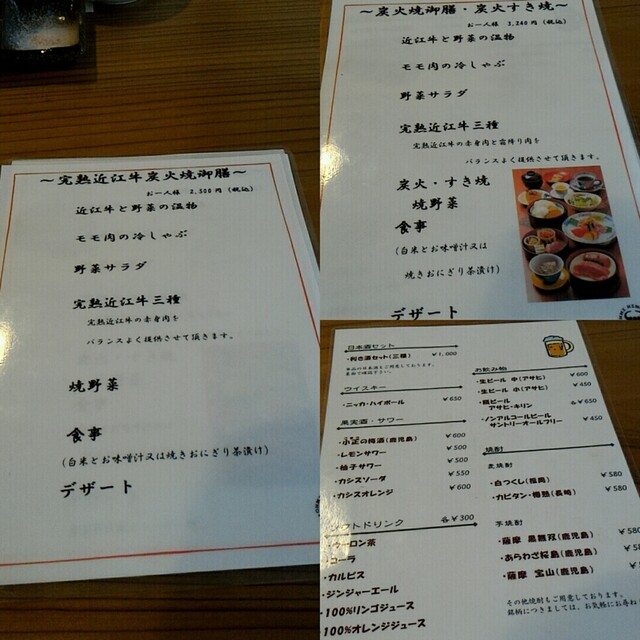 ～完熟近江牛炭火焼御膳～
お一人様 2,500円（税込）
近江牛と野菜の温物
モモ肉の冷しゃぶ
野菜サラダ
完熟近江牛三種
完熟近江牛の赤身肉を
バランスよく提供させて頂きます。
焼野菜
食事
（白米とお味噌汁又は焼きおにぎり茶漬け）
デザート
～炭火焼御膳・炭火すき焼～
お一人様 3,240円（税込）
近江牛と野菜の温物
モモ肉の冷しゃぶ
野菜サラダ
完熟近江牛三種
完熟近江牛の赤身肉と霜降り肉を
バランスよく提供させて頂きます。
炭火・すき焼
焼野菜
食事
（白米とお味噌汁又は
焼きおにぎり茶漬け）
デザート
日本酒セット
・利き酒セット（三種） ￥1,000
単品の日本酒もご用意しております。
ウイスキー
・ニッカ・ハイボール ￥650
果実酒・サワー
・小正の梅酒（鹿児島） ￥600
・レモンサワー ￥500
・柚子サワー ￥500
・カシスソーダ ￥550
・カシスオレンジ ￥600
フトドリンク 各￥300
ーロン茶
コーラ
・カルピス
・ジンジャーエール
・100%リンゴジュース
・100%オレンジジュース
お飲み物
・生ビール 中（アサヒ） ￥600
・生ビール 小（アサヒ） ￥450
・瓶ビール
アサヒ・キリン 各￥650
・ノンアルコールビール
サントリーオールフリー ￥450
焼酎
麦焼酎
・白つくし（福岡） ￥580
・カピタン・樽熟（長崎） ￥580
芋焼酎
・薩摩 黒無双（鹿児島） ￥580
・あらわざ桜島（鹿児島） ￥58
・薩摩 宝山（鹿児島） ￥5
その他焼酎もご用意しております。
銘柄につきましては、お気軽にお尋ね